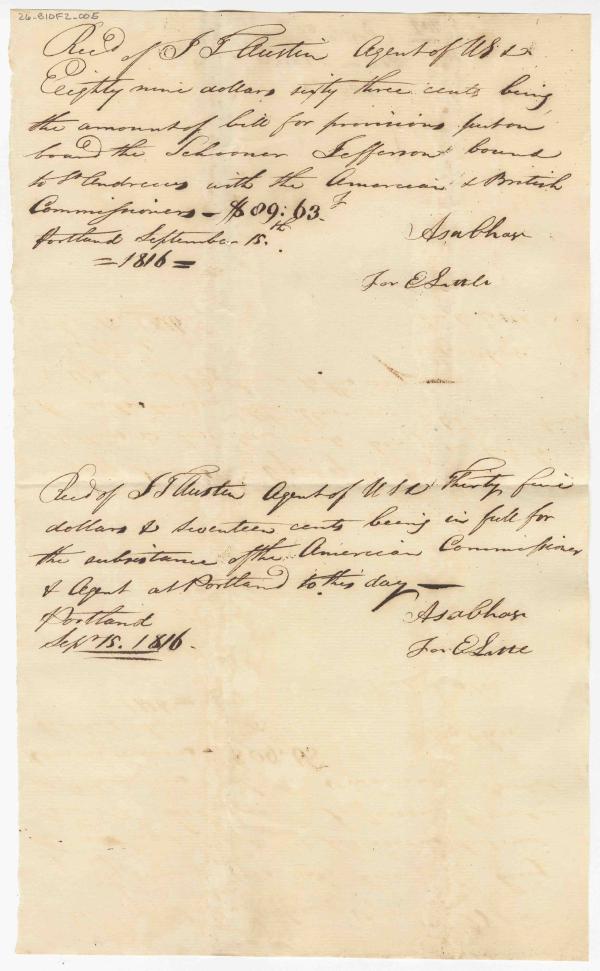 26-810F2-005
Recd of J T Austin Agent of US &c
Eighty nine dollars sixty three cents being
the amount of bill for provisions put on
board the Schooner Jefferson bound
to St Andrews with the American & British
Commissioners - $89:63
Portland September 15th
=1816=
Asa Chase
For E Little
Recd of J T Austin Agent of US &c Thirty five
dollars & seventeen cents being in full for
the subsistance of the American Commissioner
& Agent at Portland to this day —
Portland
Sepr 15. 1816.
Asa Chase
For E Little